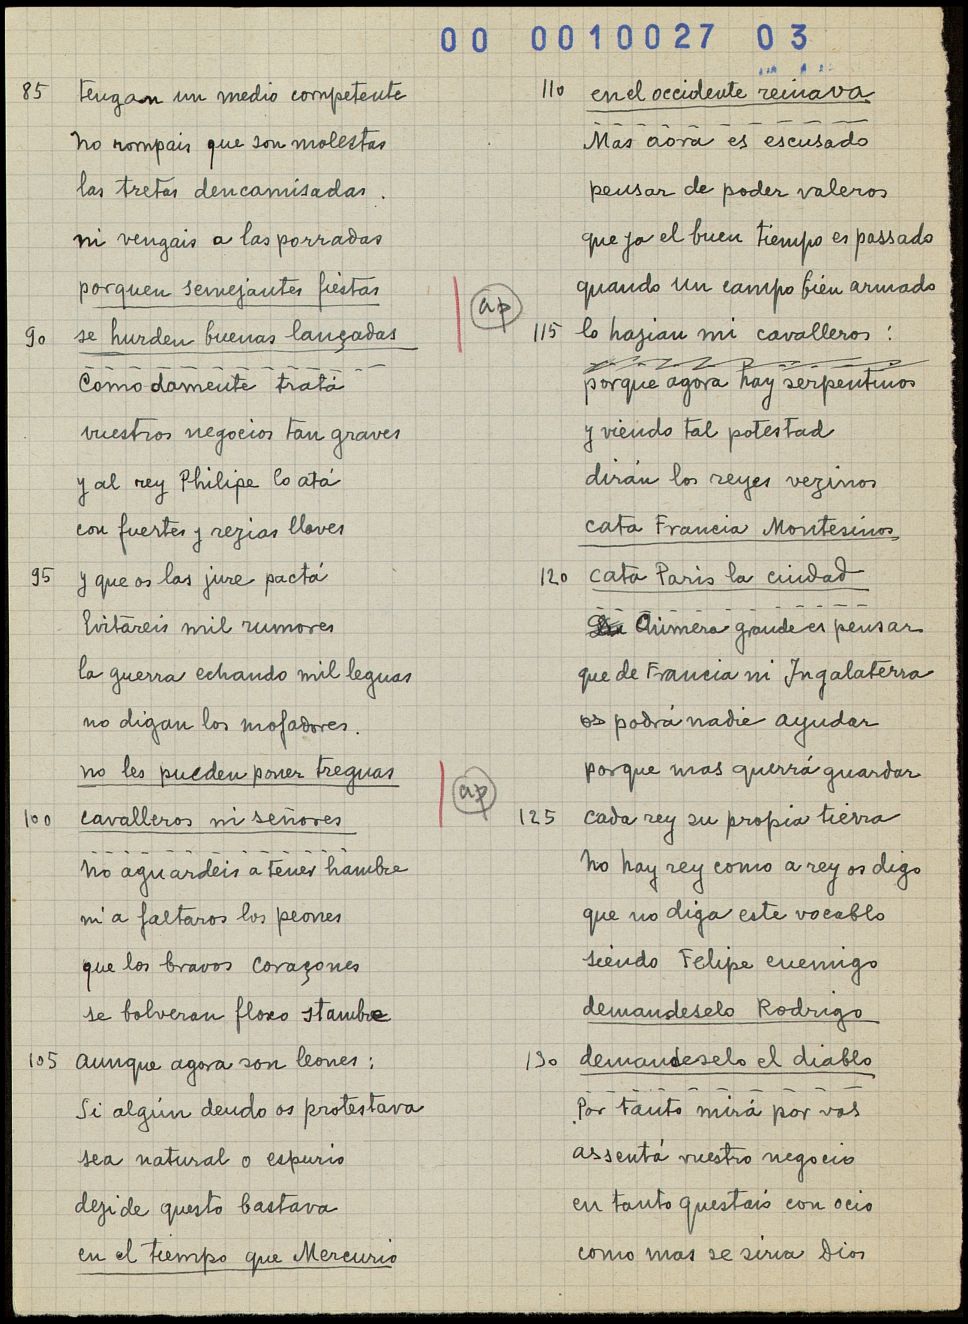 00 0010027 03
85 tengan un medio competente
no rompais que son molestas
las tretas dencamisadas.
ni vengais a las porradas
porquen semejantes fiestas
90 se hurden buenas lançadas
Comodamente tratá
vuestros negocios tan graves
y al rey Philipe lo atá
con fuertes y rezias llaves
95 y que os las jure pactá
Evitareis mil rumores
la guerra echando mil leguas
no digan los mofadores.
no les pueden poner treguas
100 cavalleros ni señores
no aguardeis a tener hambre
ni a faltaros los peones
que los bravos coraçones
se bolveran floxo stambre
105 aunque agora son leones:
Si algún deudo os protestava
sea natural o espurio
dezide questo bastava
en el tiempo que Mercurio
ap
ap
110 en el occidente reinava
Mas aora es escusado
pensar de poder valeros
que ya el buen tiempo es passado
quando un campo bien armado
115 lo hazian mi cavalleros:
porque agora hay serpentinos
y viendo tal potestad
dirán los reyes vezinos
cata Francia Montesinos,
120 cata Paris la ciudad
Quimera grande es pensar
que de Francia ni Ingalaterra
os podrá nadie ayudar
porque mas querrá guardar
125 cada rey su propia tierra
no hay rey como a rey os digo
que no diga este vocablo
siendo Felipe enemigo
demandeselo Rodrigo
130 demandeselo el diablo
Por tanto mirá por vos
assentá vuestro negocio
en tanto questais con ocio
como mas se sirva Dios